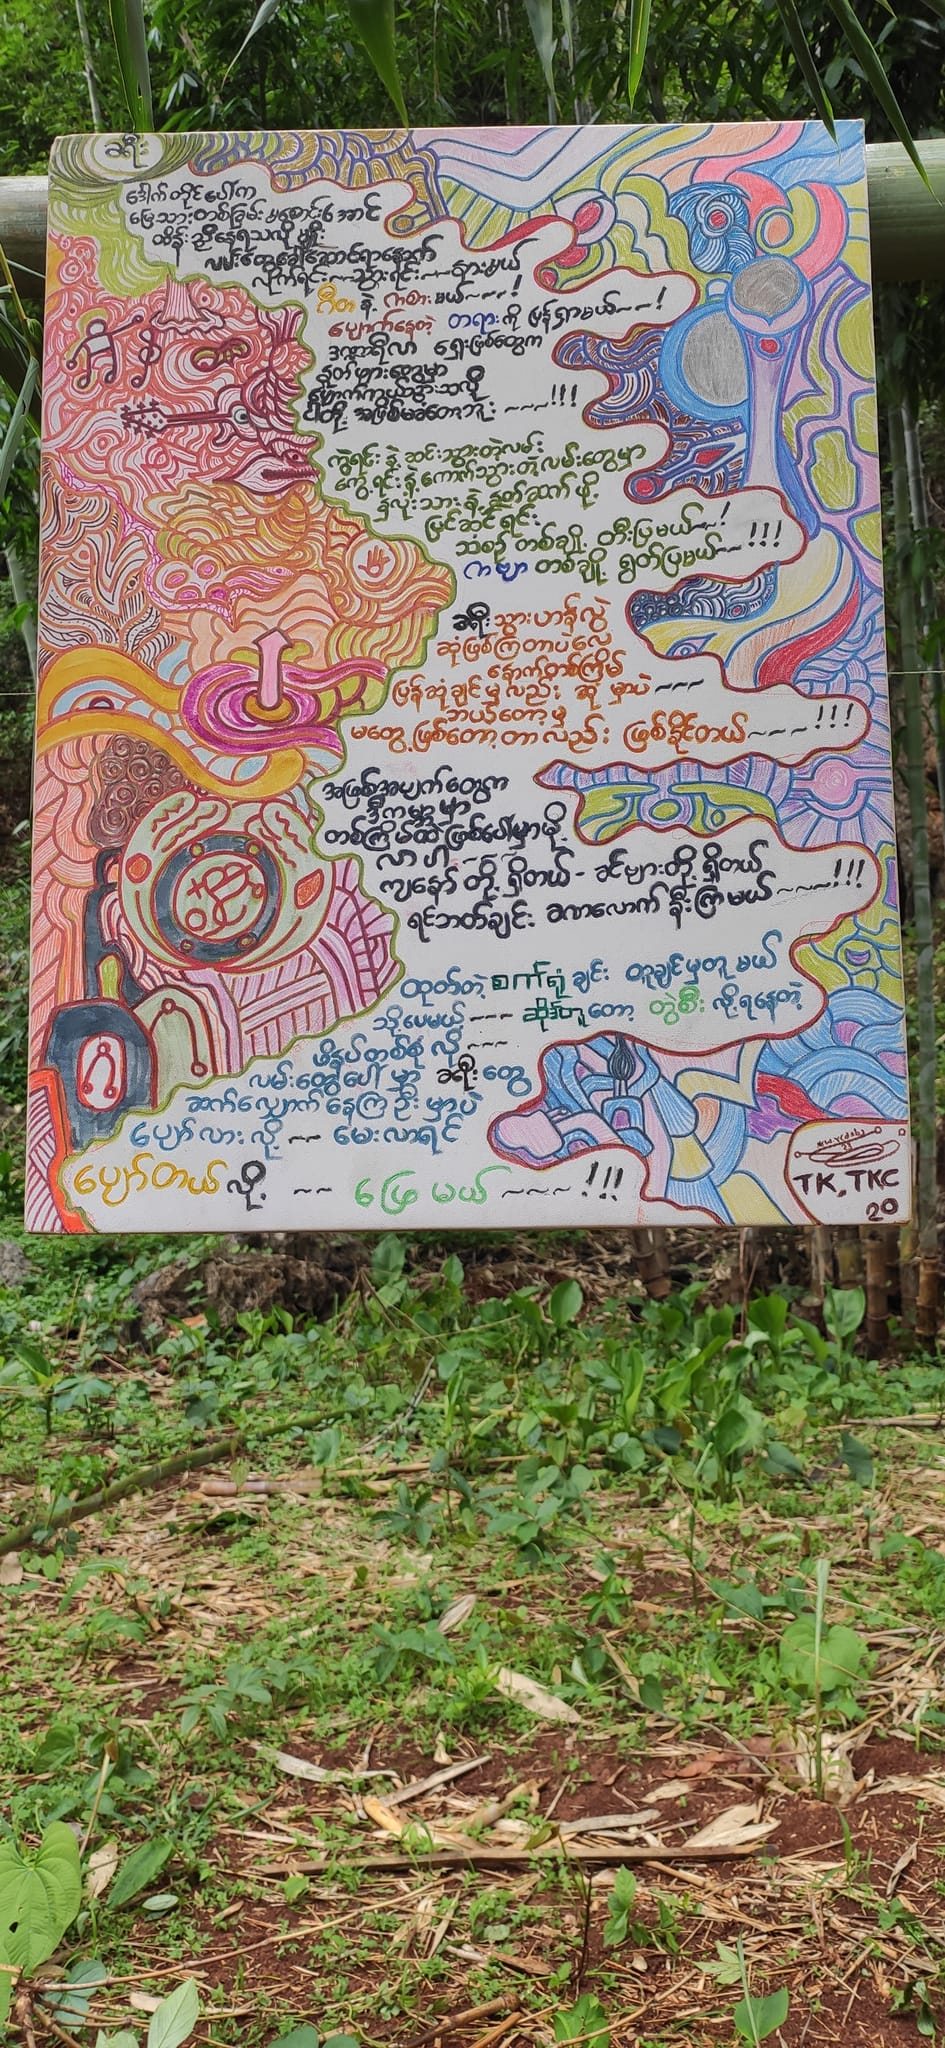 ခရီး
ဒေါက်တိုင်ပေါ်က
မြေသားတစ်ခြမ်း မစောင်းအောင်
ထိန်းညှိနေရသလိုမျိုး
လမ်းတွေခေါ်ဆောင်ရာနောက်
လိုက်ရင်း--သွားရင်း--နားမယ်
ဂီတ နဲ့ ကစားမယ်~~~!
ပျောက်နေတဲ့ တရားကို ပြန်ရှာမယ်~~!
ဒဏ္ဍာရီလာ ရှေးဖြစ်တွေက
နှုတ်ဖျားတွေမှာ
ပျောက်ကွယ်သွားသလို
ငါတို့ အဖြစ်မခံတော့ဘူး ~~~!!!
ကွဲရင်းနဲ့ ဆင်းသွားတဲ့လမ်း
ကွေ့ရင်းနဲ့ ကောက်သွားတဲ့ လမ်းတွေမှာ
နှလုံးသားနဲ့ နှုတ်ဆက်ဖို့
ပြင်ဆင်ရင်း
သံစဉ် တစ်ချို့ တီးပြမယ်~~!
ကဗျာ တစ်ချို့ ရွတ်ပြမယ်~~!!!
ခရီးသွားဟန်လွှဲ
ဆုံဖြစ်ကြတာပဲလေ
နောက်တစ်ကြိမ်
ပြန်ဆုံချင်မှလည်း ဆုံမှာပဲ~~~
ဘယ်တော့မှ
မတွေ့ဖြစ်တော့တာလည်း ဖြစ်နိုင်တယ်~~~!!!
အဖြစ်အပျက်တွေက
ဒီကမ္ဘာမှာ
တစ်ကြိမ်ထဲ ဖြစ်ပေါ်မှာမို့
လာပါ~~~
ကျနော်တို့ ရှိတယ် - ခင်ဗျားတို့ ရှိတယ်
ရင်ဘတ်ချင်း ခဏလောက် နှီးကြမယ်~~~!!!
ထုတ်တဲ့ စက်ရုံချင်း တူချင်မှတူမယ်
သို့ပေမယ့်~~~ ဆိုဒ်တူတော့ တွဲစီးလို့ရနေတဲ့
ဖိနပ်တစ်စုံလို~~~
လမ်းတွေပေါ်မှာ ခရီးတွေ
ဆက်လျှောက်နေကြဦးမှာပဲ
ပျော်လားလို့~~ မေးလာရင်
ပျော်တယ်လို့ ~~ ဖြေမယ် ~~~!!!
TK, TKC
20